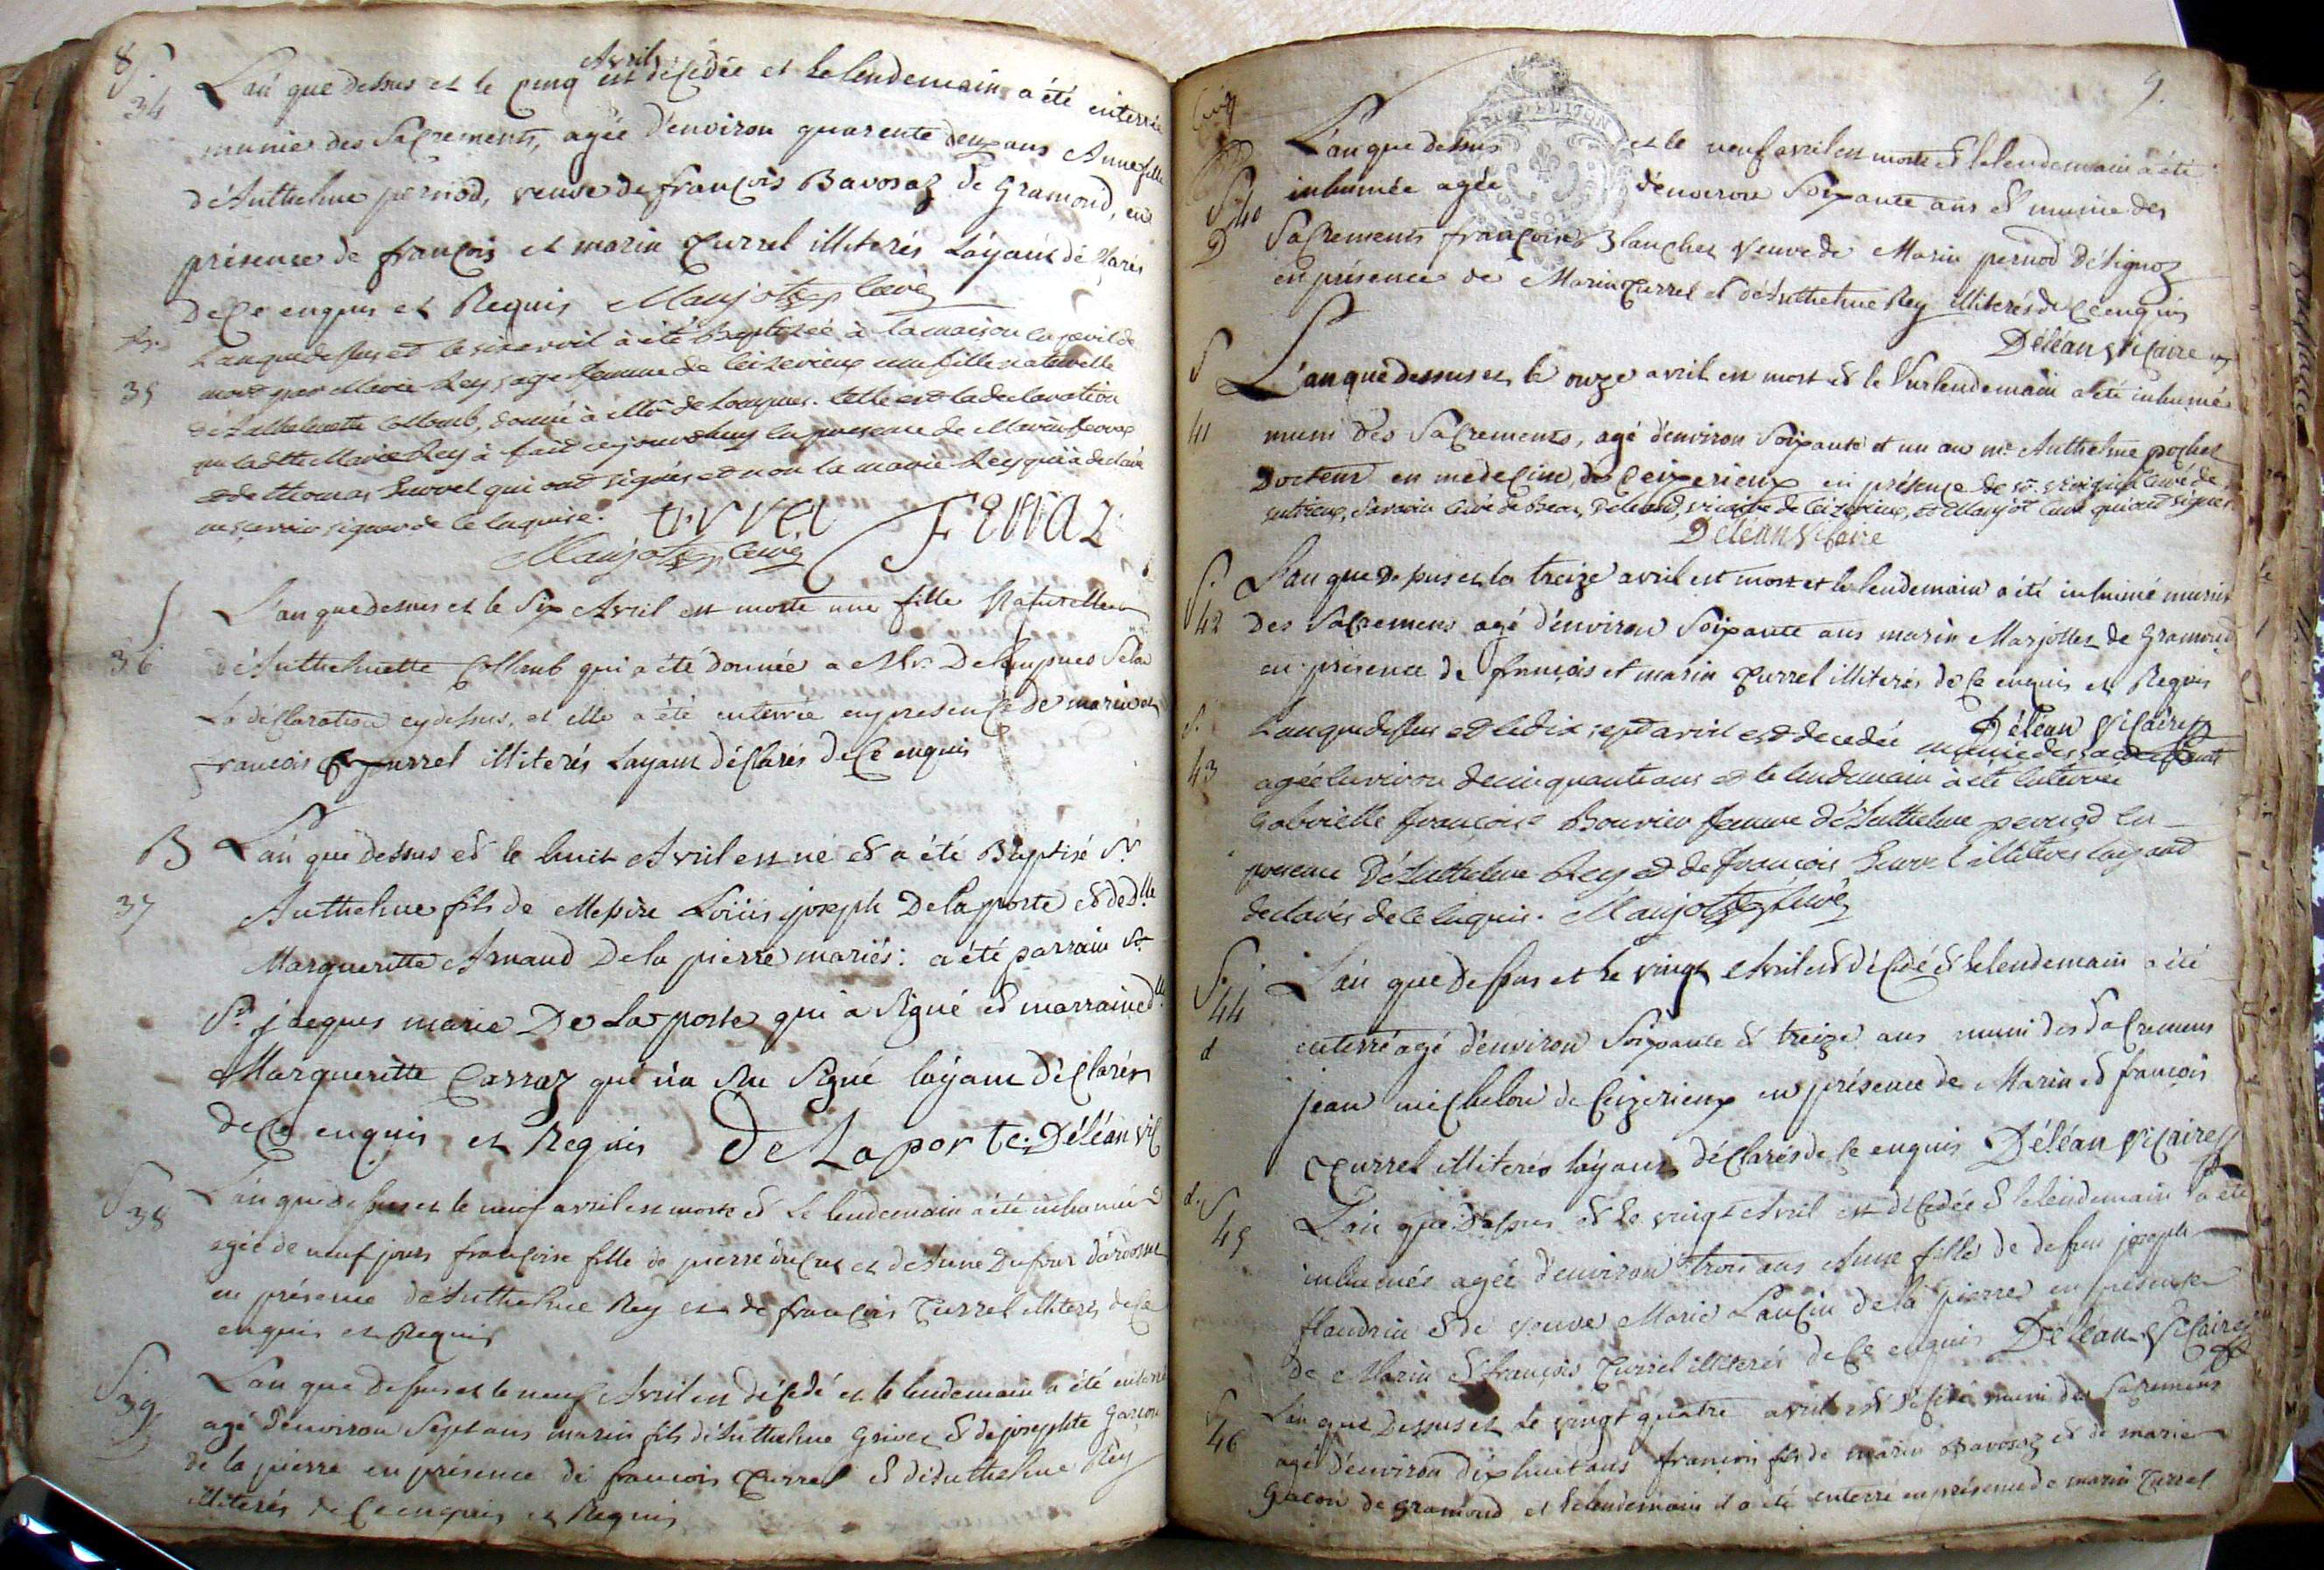 8
S.
34
L'an que dessus et le cinq Avril est décédée et le lendemain a été enterrée
munie des Sacrements, agée d'environ quarente deux ans Anne fille
d'Anthelme pernod, veuve de françois Bavosaz de Gramond, en
présence de françois et marin Turrel illiterés L'ayant déclarés
de Ce enquis et Requis Maujot Curé
35
L'an que dessus et le six avril à été Baptisée à la maison en peril de
mort par Marie Rey sage femme de Ceizerieux une fille naturelle
d'Anthelmette Collomb, donné à Mr de Longpres. telle est la declaration
que ladtte Marie Rey à fait cejourdhuy en presence de Marin ferraz
et de thomas turrel qui ont signés et non la marie Rey qui à declaré
ne scavoir signer de ce enquise. turrel Ferraz
Maujot Curé
S
36
L'an que dessus et le Six Avril est morte une fille Naturelle
d'Anthelmette Collomb qui a été donnée a Mr. Selon
La déclaration cy dessus, et elle a été enterrée en presence de marin et
francois turrel illiterés Layant déclarés de Ce enquis
B
37
L'an que dessus et le huit Avril est né et a été Baptisé Sr
Anthelme fils de Messire Loüis joseph Delaporte et de dlle
Margueritte Arnaud De la pierre mariés: a été parrain
Sr jacques marie De La porte qui a Signé et marraine dlle
Margueritte Carraz qui n'a Signé layant déclarés
de Ce enquis et Requis De Laporte. Déléan vic
S
38
L'an que dessus et le neuf avril est morte et Le lendemain a été inhumée
agée de neuf jours françoise fille de pierre et de Anne Dufour
en présence d'Anthelme Rey et de françois Turrel illiterés de Ce
enquis et Requis
S
39
L'an que Dessus et le neuf Avril est décédé et le lendemain a été enterré
agé d'environ Sept ans marin fils d'Anthelme Grivet et de josephte Garçon
de la pierre en présence de francois Turrel et d'Anthelme Rey
illiterés de Ce enquis et Requis
9.
S.
40
L'an que dessus et le neuf avril est morte et le lendemain a été
inhumée agée d'environ Soixante ans et munie des
Sacrements françoise Blanchet veuve de Marin pernod
en présence de Marin Turrel et d'Anthelme Rey illiterés de Ce enquis
Déléan vicaire
S
41
L'an que dessus et le onze avril est mort et le Surlendemain a été inhumé
muni des Sacrements, agé d'environ Soixante et un an mr Anthelme pochet
Docteur en medecine, de Ceizerieux en présence de Sr. Curé de
curé de Deleand, vicaire de Ceizerieux, et Maujot curé qui ont signés
Déléan vicaire
S.
42
L'an que dessus et le treize avril est mort et le lendemain a été inhumé munit
des Sacremens agé d'environ Soixante ans marin Marjollet de Gramond
en présence de françois et marin Turrel illiterés de Ce enquis et Requis
Déléan vicaire
S.
43
L'an que dessus et le dix sept avril est decedée munie des sacrements
agée environ de cinquante ans et le lendemain à eté enterrée
Gabrielle françoise Bouvier femme d'Anthelme pernod en
presence D'Anthelme Rey et de françois turrel illiteres layant
declarés de ce enquis. Maujot Curé
S.
44
d
L'an que Dessus et Le vingt Avril est décédé et le lendemain a été
enterré agé d'environ Soixante et treize ans muni des Sacremens
jean michelon de Ceizerieux en présence de Marin et françois
Turrel illiterés layant déclarés de Ce enquis Déléan vicaire
d. S
45
L'an que Dessus et Le vingt Avril est décédée et le lendemain a été
inhumée agée d'environ trois ans Anne fille de defun joseph
flandrin et de veuve Marie Lancin de la pierre en présence
de Marin et françois Turrel illiterés de Ce enquis Déléan vicaire
S
46
L'an que Dessus et Le vingt quatre avril est décédé muni des Sacremens
agé d'environ dix huit ans francois fils de marin Bavosaz et de marie
Gacon de gramond et le lendemain il a été enterré en présence de marin Turrel